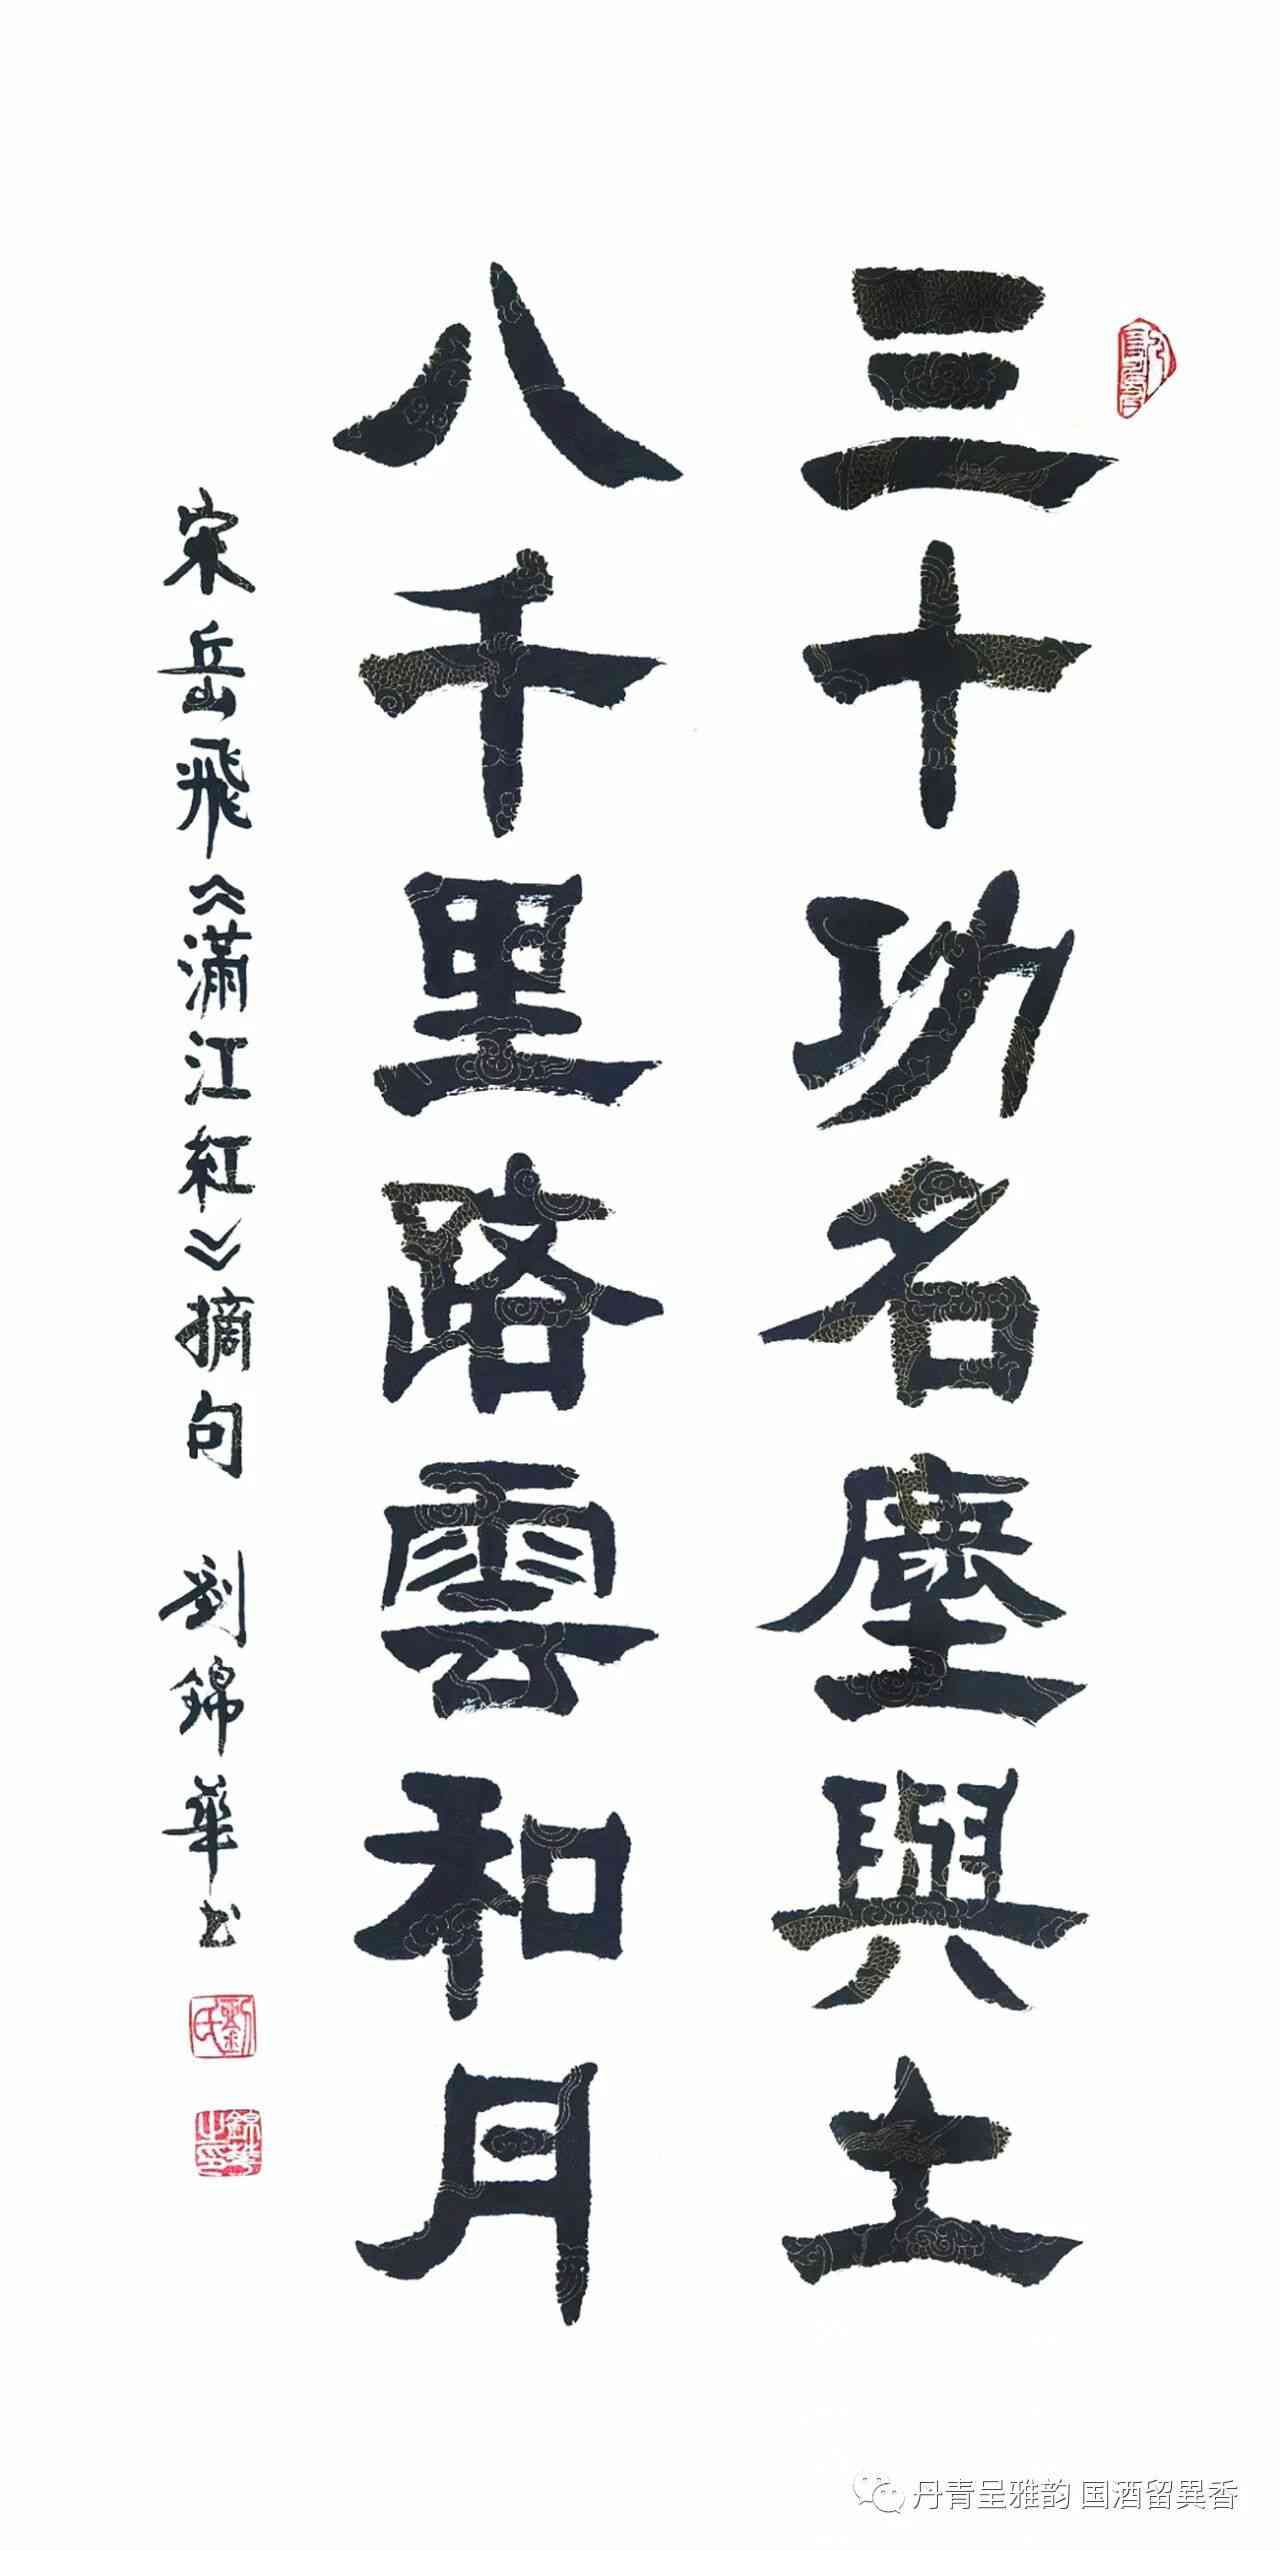 三十功名塵與土
八千里路雲和月
宋岳飛《滿江紅》摘句 劉錦華书
劉氏
錦華之印
丹青呈雅韵 国酒留異香